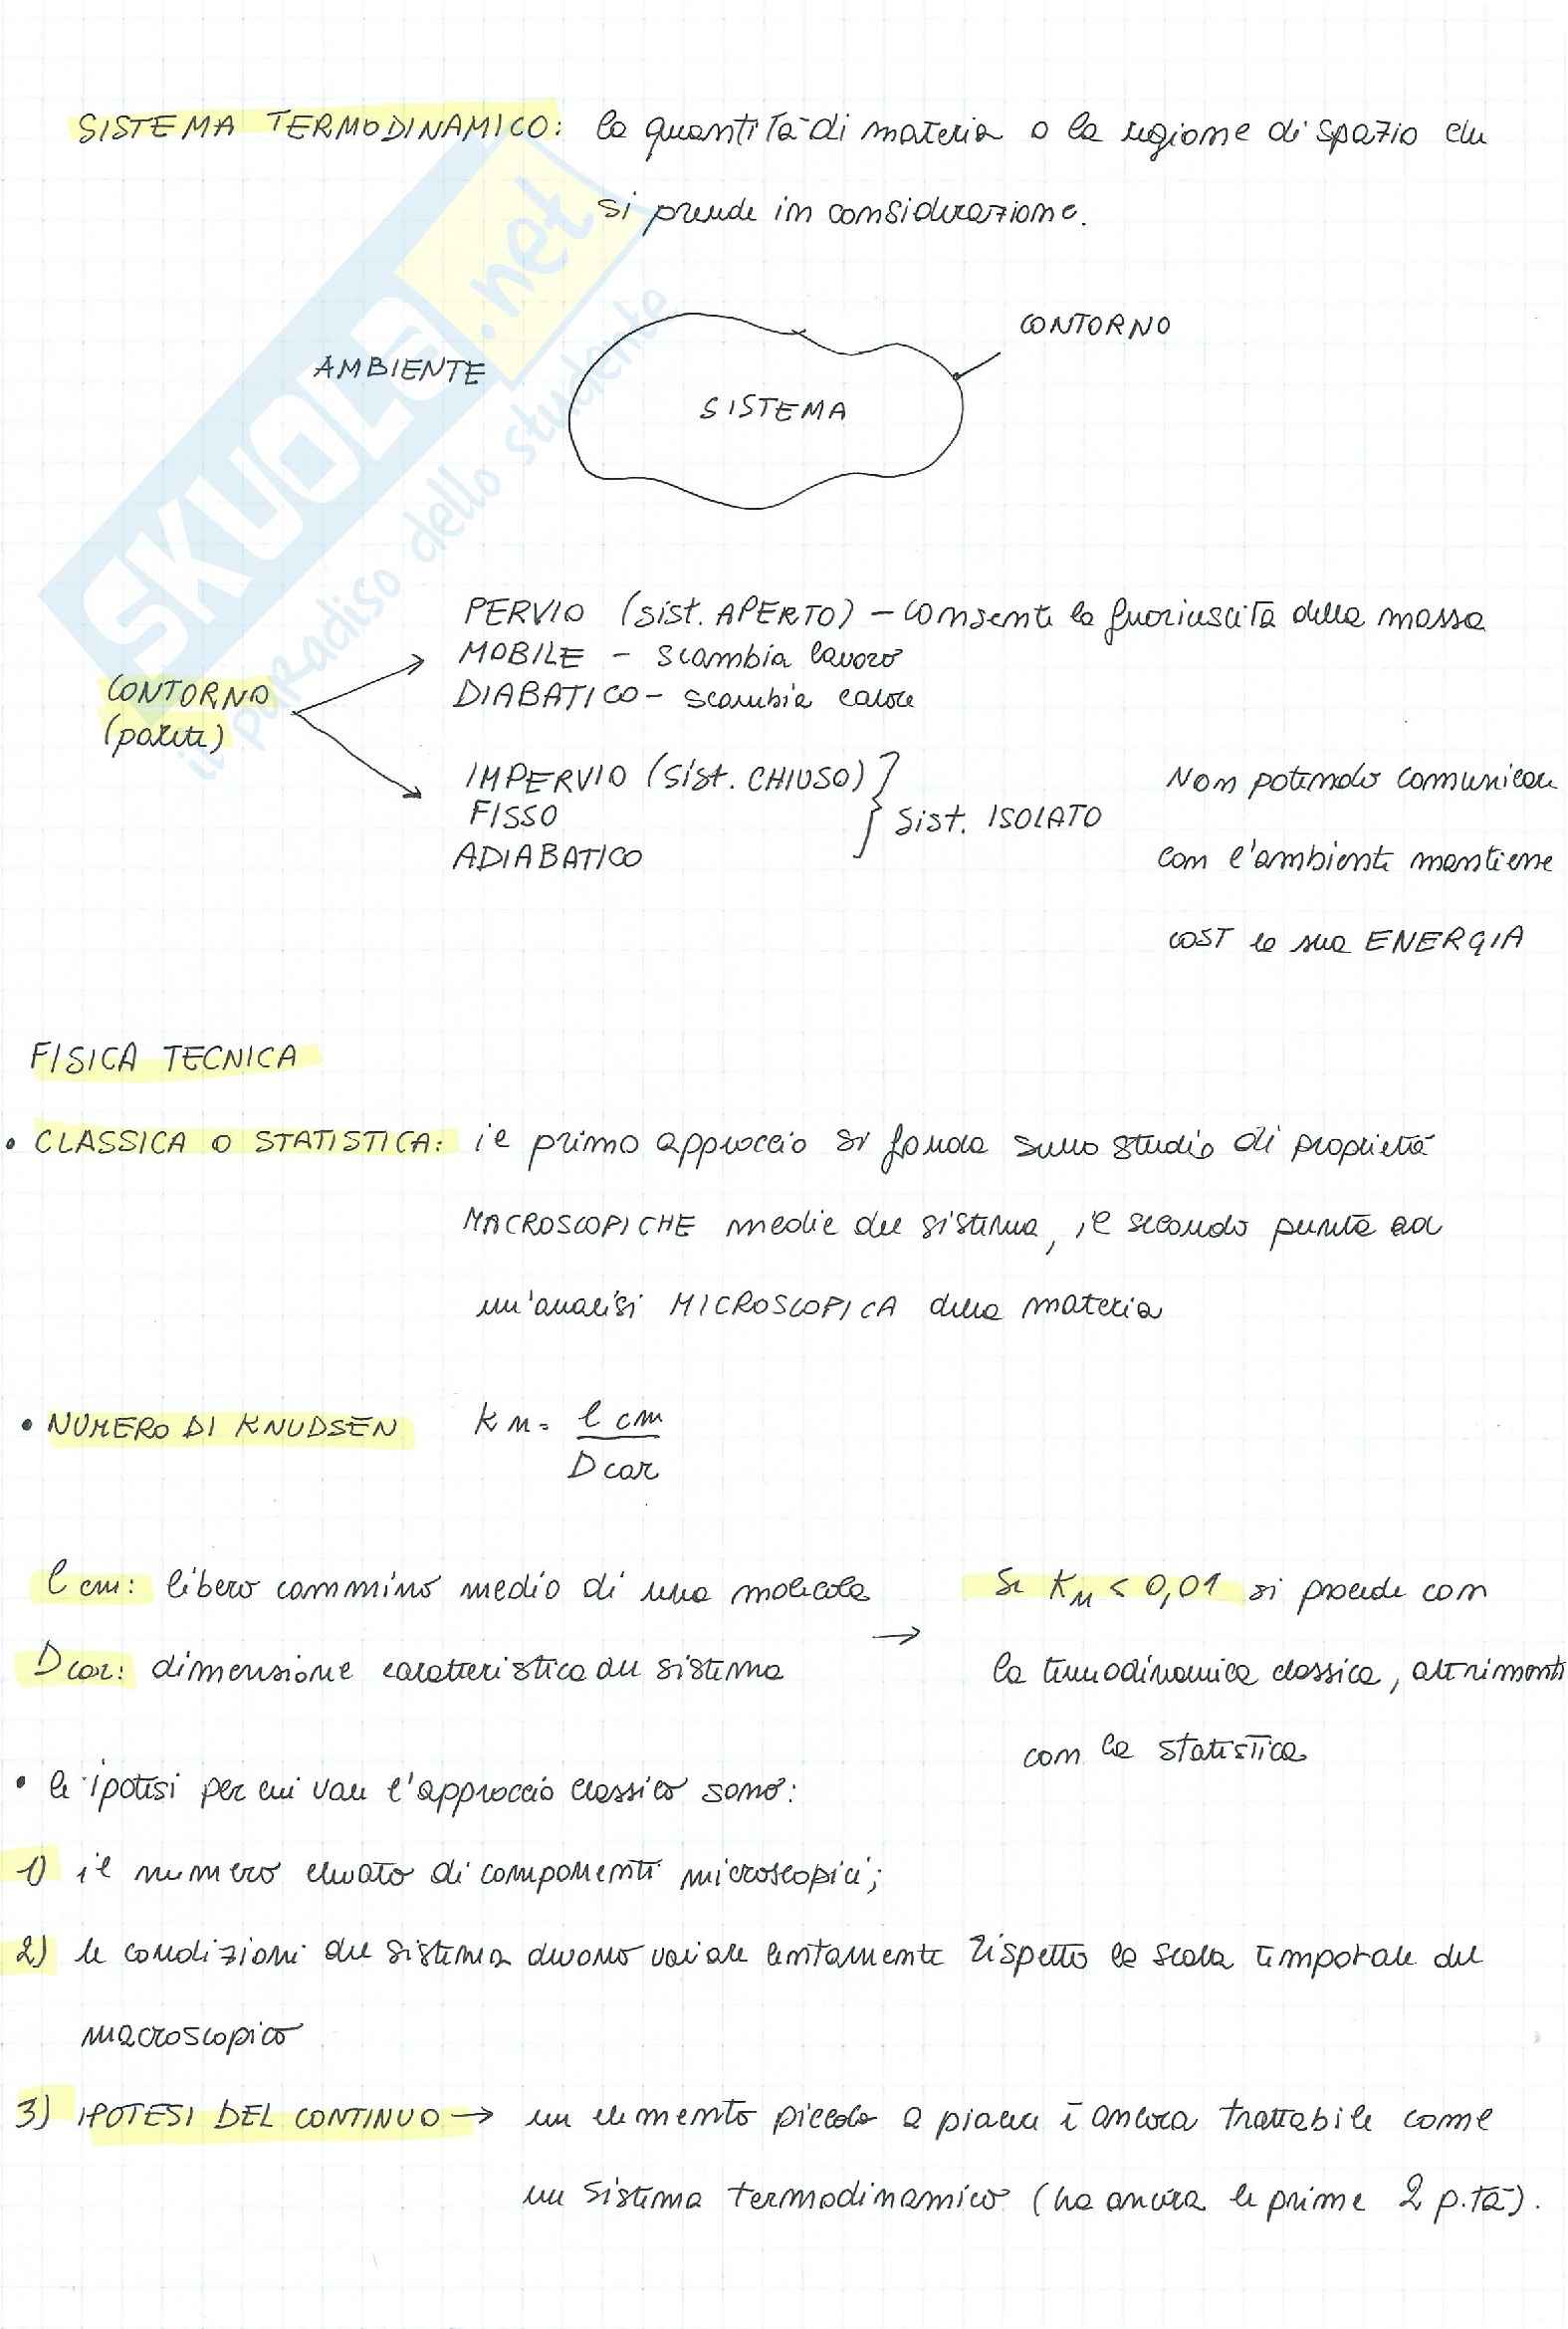 SISTEMA TERMODINAMICO: la quantità di materia o la regione di spazio che
si prende in considerazione.
CONTORNO
AMBIENTE
SISTEMA
PERVIO (sist. APERTO) - consente la fuoriuscita della massa
MOBILE - scambia lavoro
DIABATICO - scambia calore
CONTORNO
(pareti)
IMPERVIO (sist. CHIUSO)
FISSO
ADIABATICO
} sist. ISOLATO
Non potendo comunicare
con l'ambiente mantiene
COST la sua ENERGIA
FISICA TECNICA
• CLASSICA O STATISTICA: il primo approccio si fonda sullo studio di proprietà
MACROSCOPICHE medie del sistema, il secondo punta ad
un'analisi MICROSCOPICA della materia
• NUMERO DI KNUDSEN Kn = l cm
D car
l cm: libero cammino medio di una molecola →
D car: dimensione caratteristica del sistema
Se Kn < 0,01 si procede con
la termodinamica classica, altrimenti
con la statistica
• le ipotesi per cui vale l'approccio classico sono:
1) il numero elevato di componenti microscopici;
2) le condizioni del sistema devono variare lentamente rispetto la scala temporale del
macroscopico
3) IPOTESI DEL CONTINUO → un elemento piccolo a piacere è ancora trattabile come
un sistema termodinamico (ha ancora le prime 2 p.tà).
SKUOLA.net
il paradiso dello studente